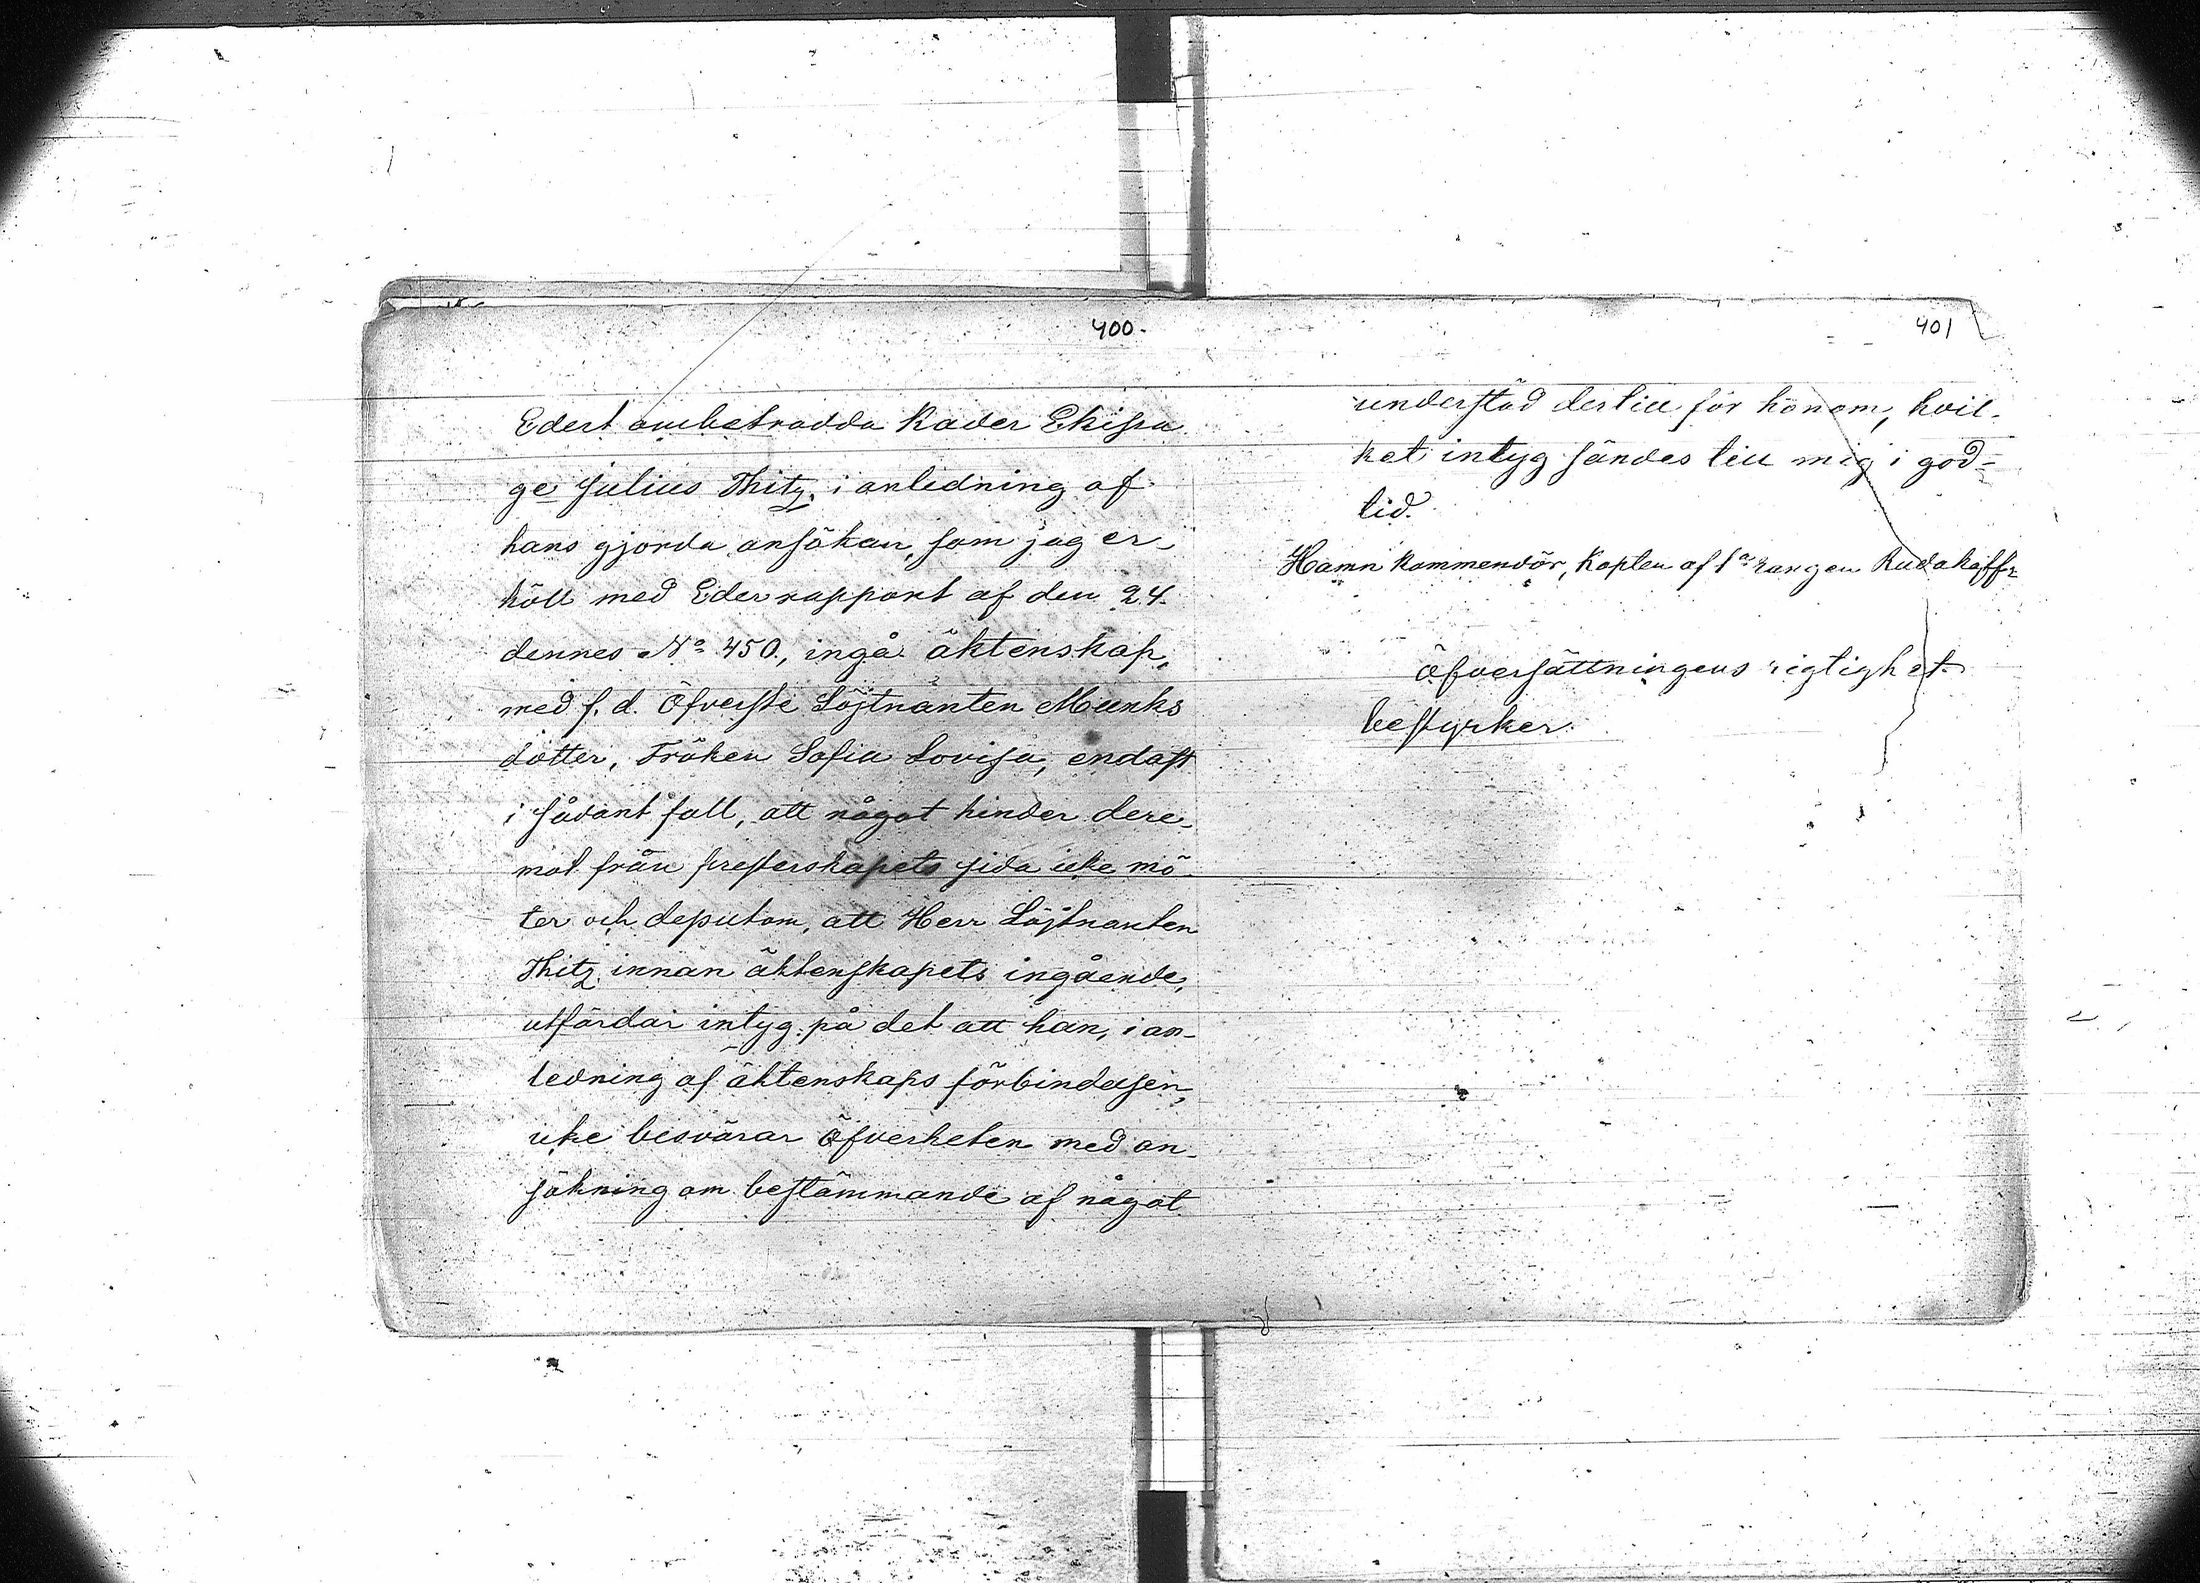 400.
Edert anbetrodda Kader Ekipa
ge Julius Thitz, i anledning af
hans gjorda ansökan, som jag er-
höll med Eder rapport af den 24.
dennes No 450., ingå äktenskap,
med f. d. Öfverste Löjtnanten Munks
dotter, Fröken Sofia Lovisa, endast
i sådant fall, att något hinder dere-
mot från presterskapets sida icke mö-
ter och dessutom, att Herr Löjtnanten
Thitz innan äktenskapets ingående,
utfärdar intyg på det att han, i an-
ledning af äktenskaps förbindelsen,
icke besvärar Öfverheten med an-
sökning om bestämmande af något
401
understöd dertill för honom, hvil-
ket intyg sändes till mig i god-
tid.
Hamn Kommendör, Kapten af 1a rangen
Öfversättningens rigtighet
bestyrker: